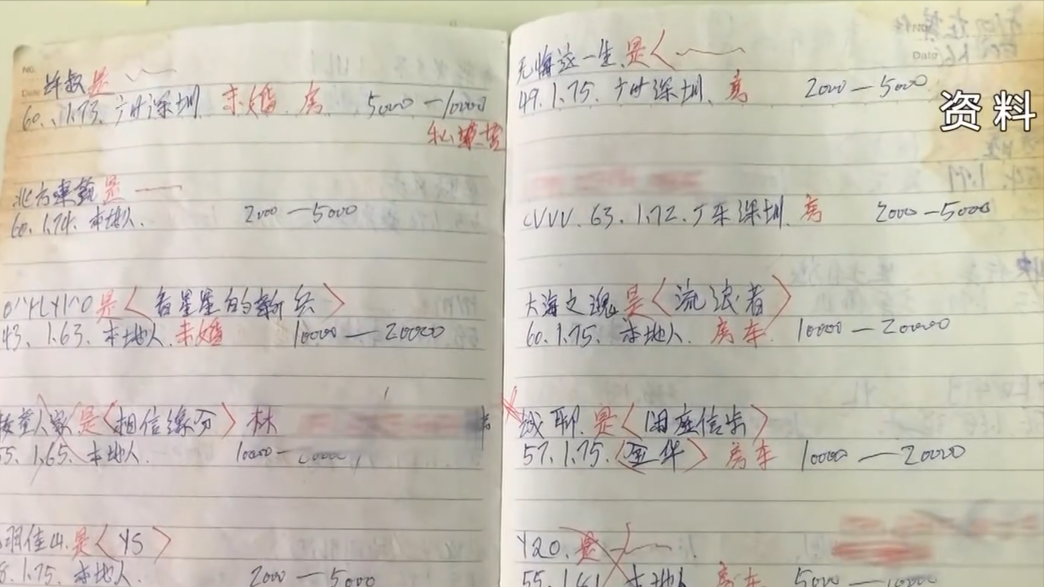 NO.
Date
许叔是
60. 1.73. 广州深圳. 未婚. 房. 5000 — 10000
北方 是
60. 1.74. 本地人. 2000 — 5000
是〈看星星的
43. 1.63. 本地人. 未婚 10000 — 20000
人家是〈相信缘分〉林
55. 1.65. 本地人. 10000 —
佳山.是〈YS〉
8.1.75. 本地人. 2000 — 5000
无悔这一生.是〈
49. 1.75. 广州深圳. 离 2000 — 5000
CVVV. 63. 1.72. 广东深圳. 离 2000 — 5000
大海之魂是〈流浪者〉
60. 1.75. 本地人. 房车. 10000 — 20000
城聊.是〈闲庭信步〉
57. 1.75.〈金华〉房车 10000 — 20000
Y20. 是
55. 1.61. 本地人 房车. 5000 — 10000
Date
资料